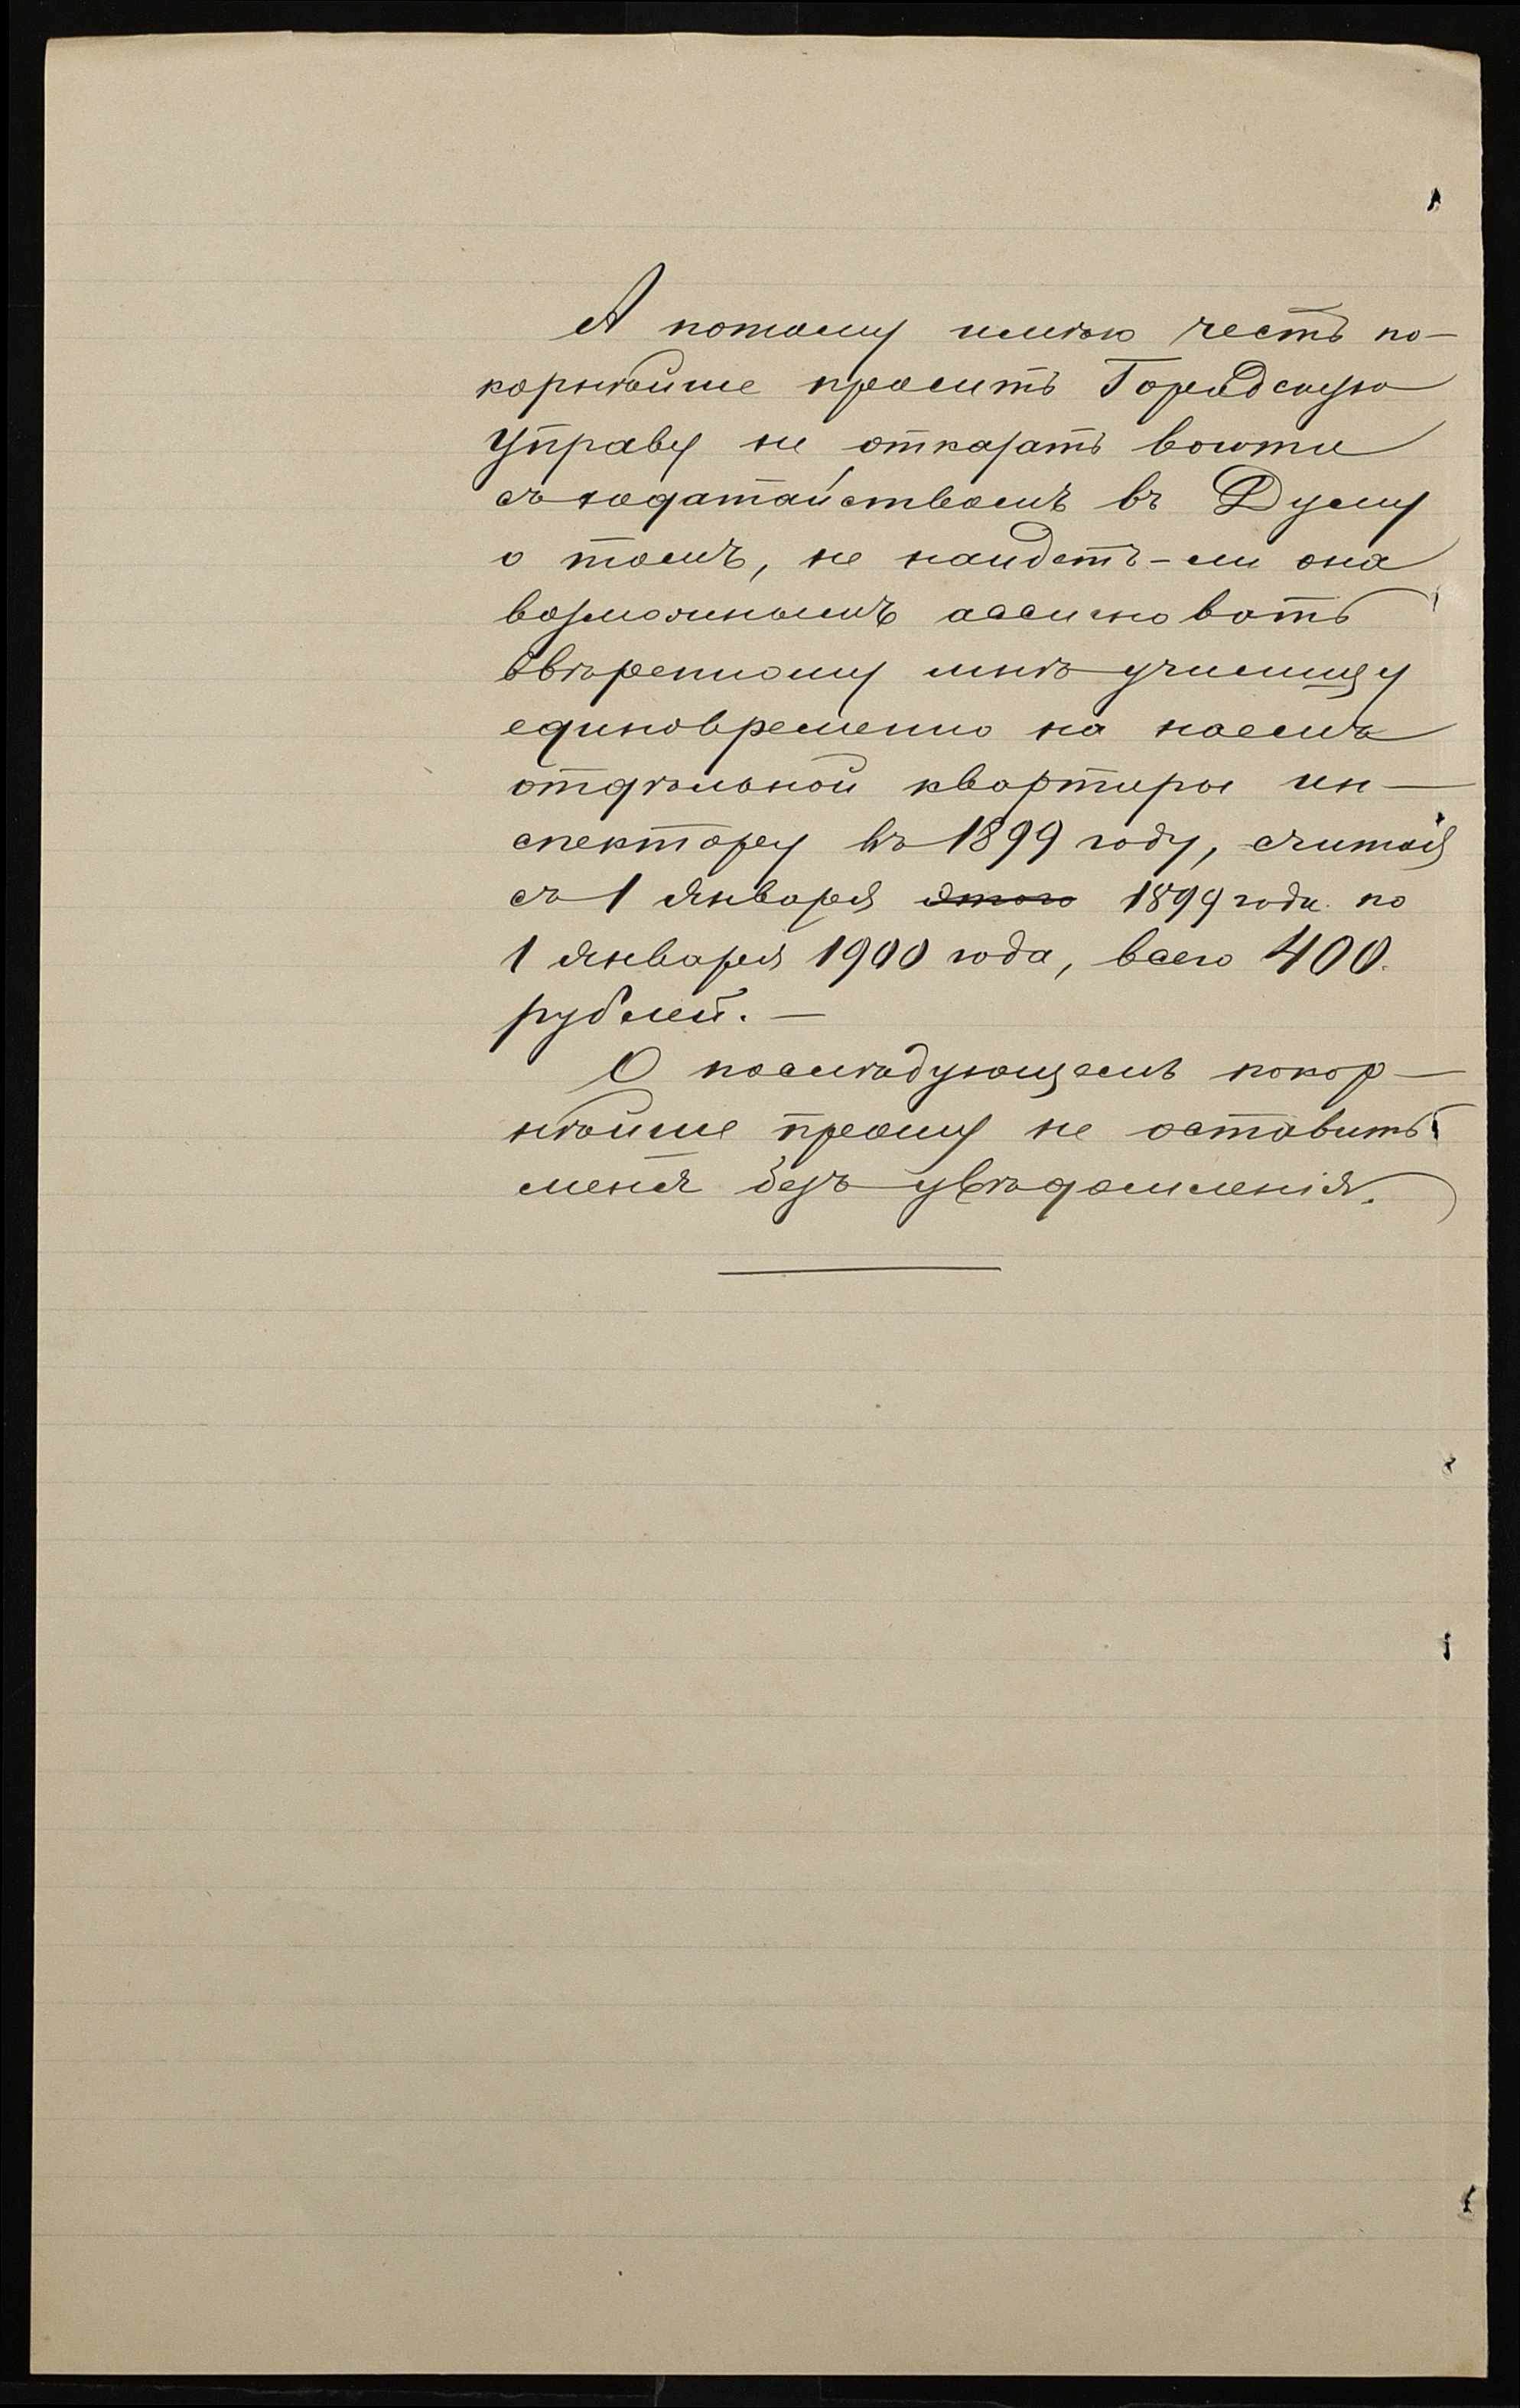 А потому имѣю честь по-
корнѣйше просить Городскую
Управу не отказать войти
съ ходатайствомъ въ Думу
о томъ, не найдетъ-ли она
возможнымъ ассигновать
ввѣренному мнѣ училищу
единовременно на наемъ
отдѣльной квартиры ин-
спектору въ 1899 году, считая
съ 1 Января этого 1899 года по
1 Января 1900 года, всего 400
рублей. —
О послѣдующемъ покор-
нѣйше прошу не оставить
меня безъ увѣдомленія.